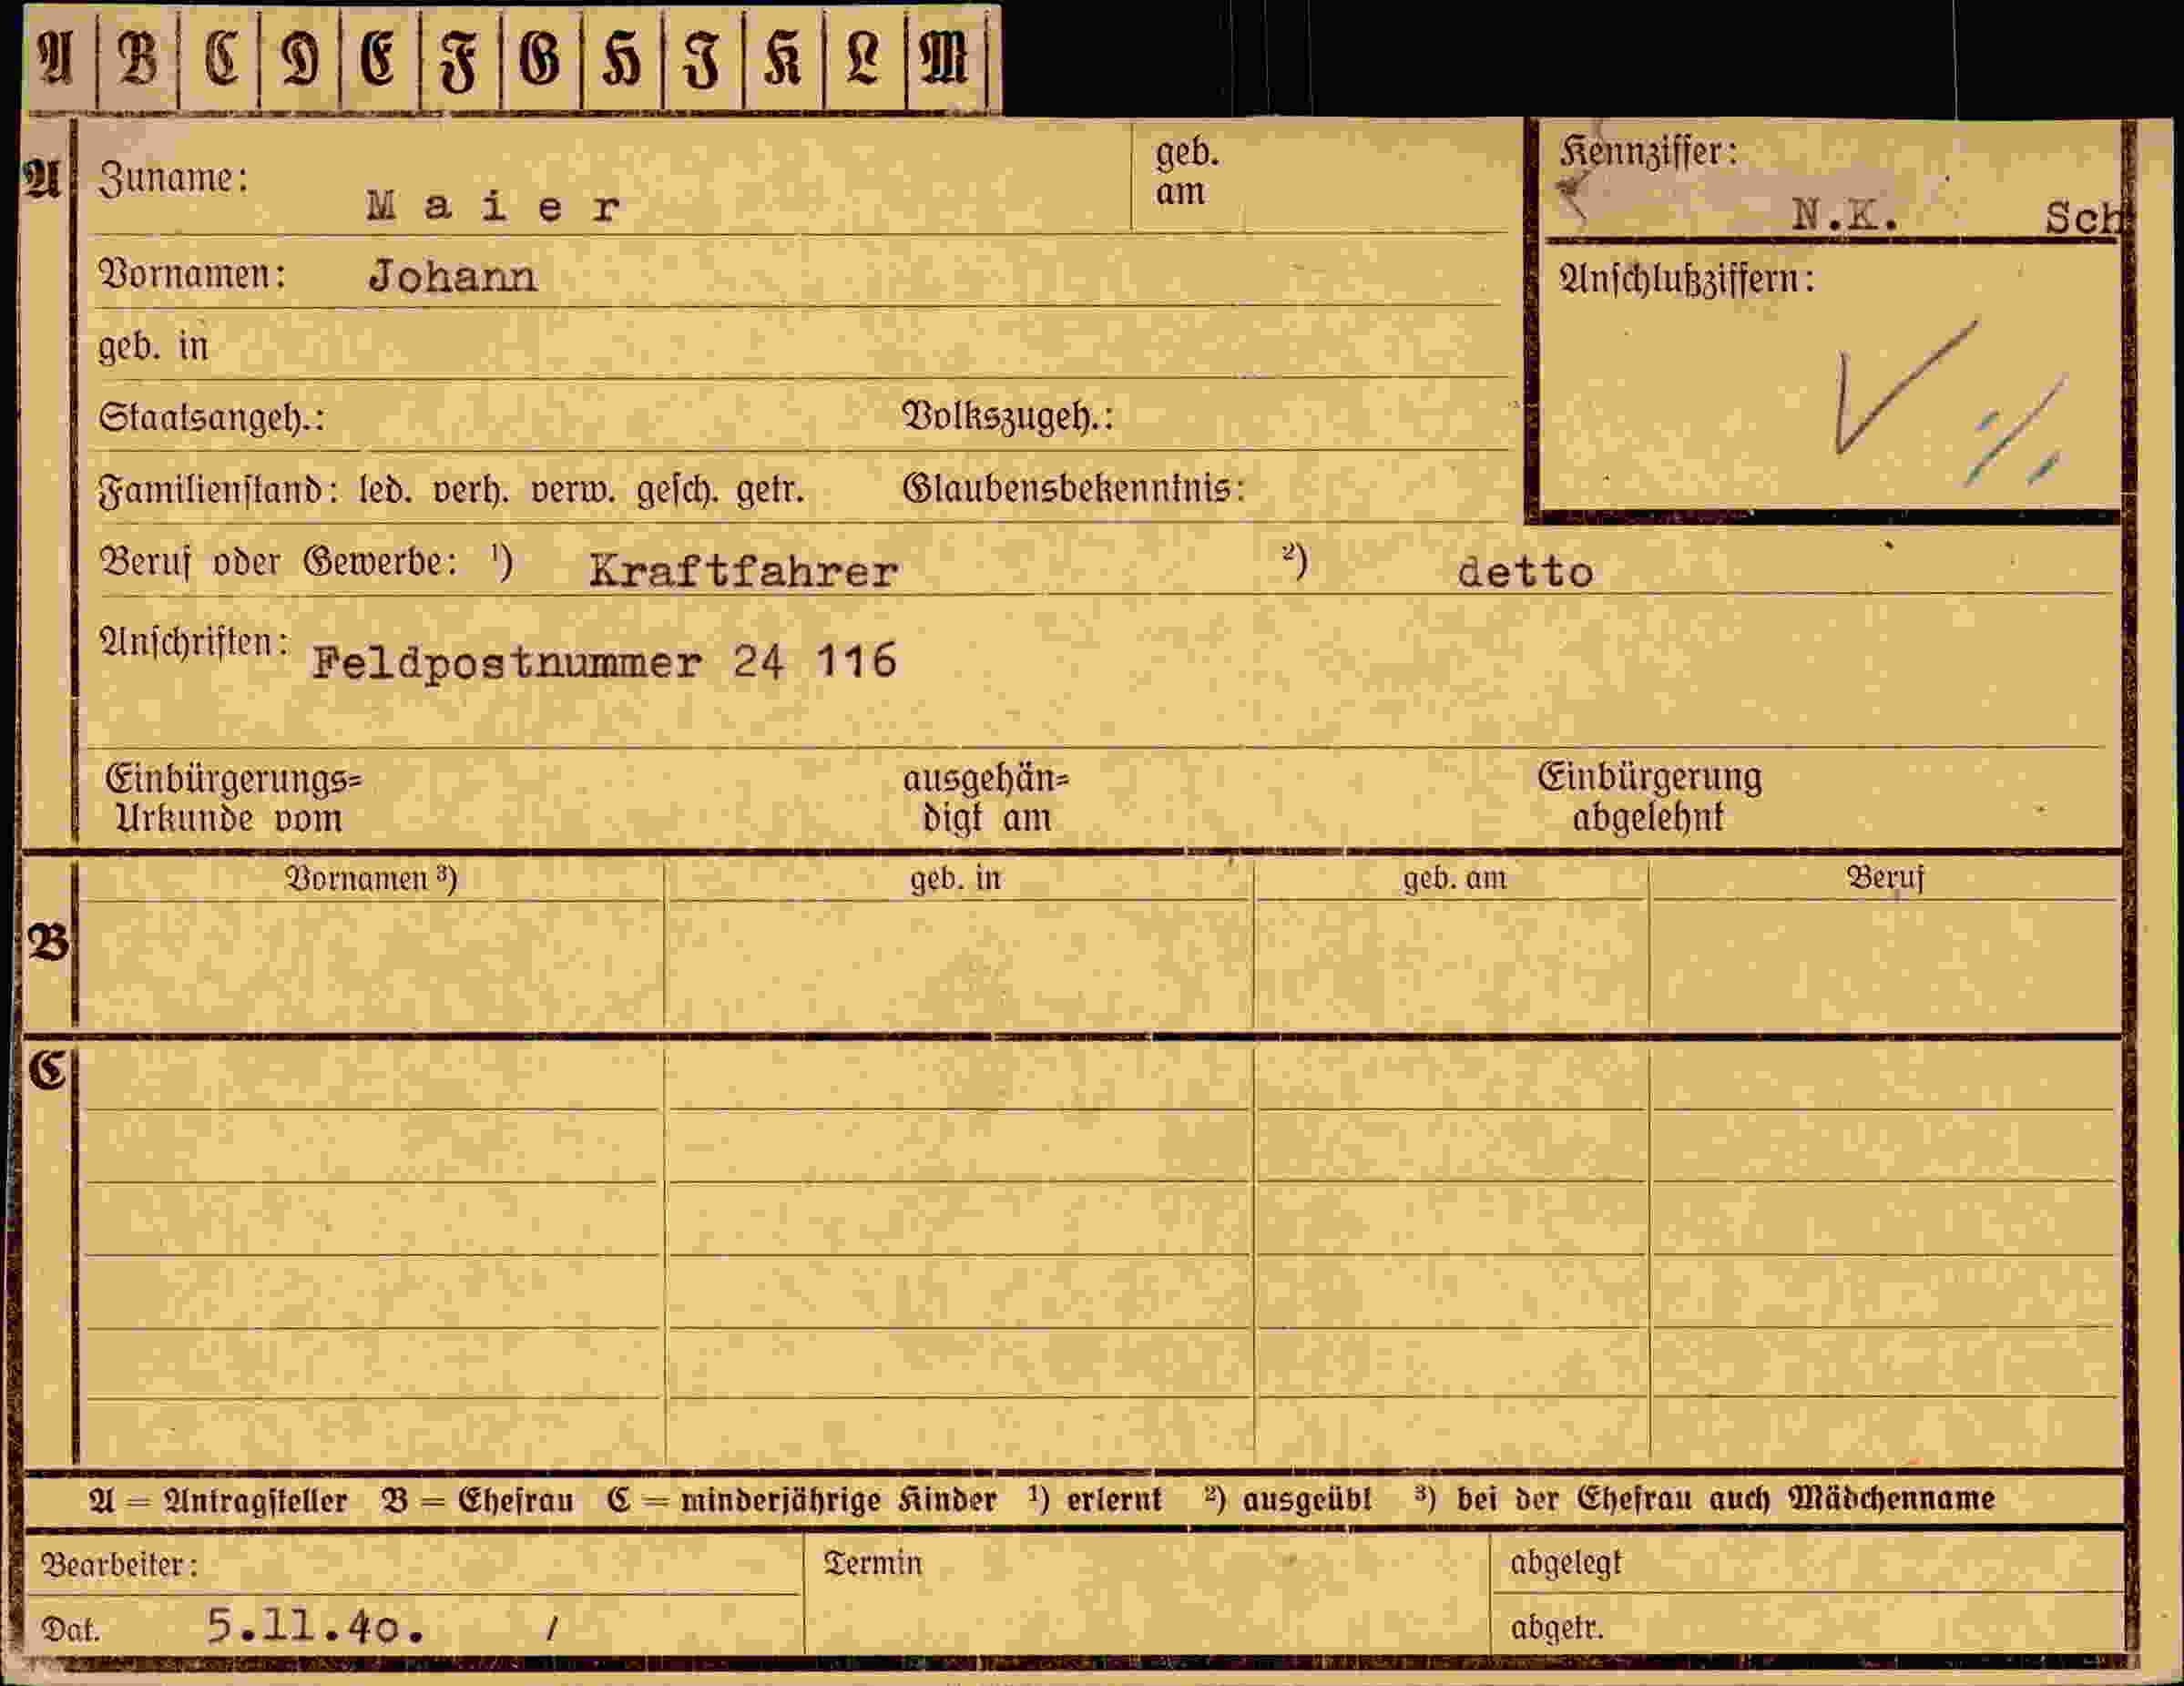 A B C D E F G H I K L M
A Zuname: Maier geb. am Kennziffer: N.K. Sch
Vornamen: Johann Anschlußziffern:
geb. in
Staatsangeh.: Volkszugeh.:
Familienstand: led. verh. verw. gesch. getr. Glaubensbekenntnis:
Beruf oder Gewerbe: ¹) Kraftfahrer ²) detto
Anschriften: Feldpostnummer 24 116
Einbürgerungs= ausgehän= Einbürgerung
Urkunde vom digt am abgelehnt
Vornamen ³) geb. in geb. am Beruf
B
C
A = Antragsteller B = Ehefrau C = minderjährige Kinder ¹) erlernt ²) ausgeübt ³) bei der Ehefrau auch Mädchenname
Bearbeiter: Termin abgelegt
Dat. 5.11.40. / abgetr.